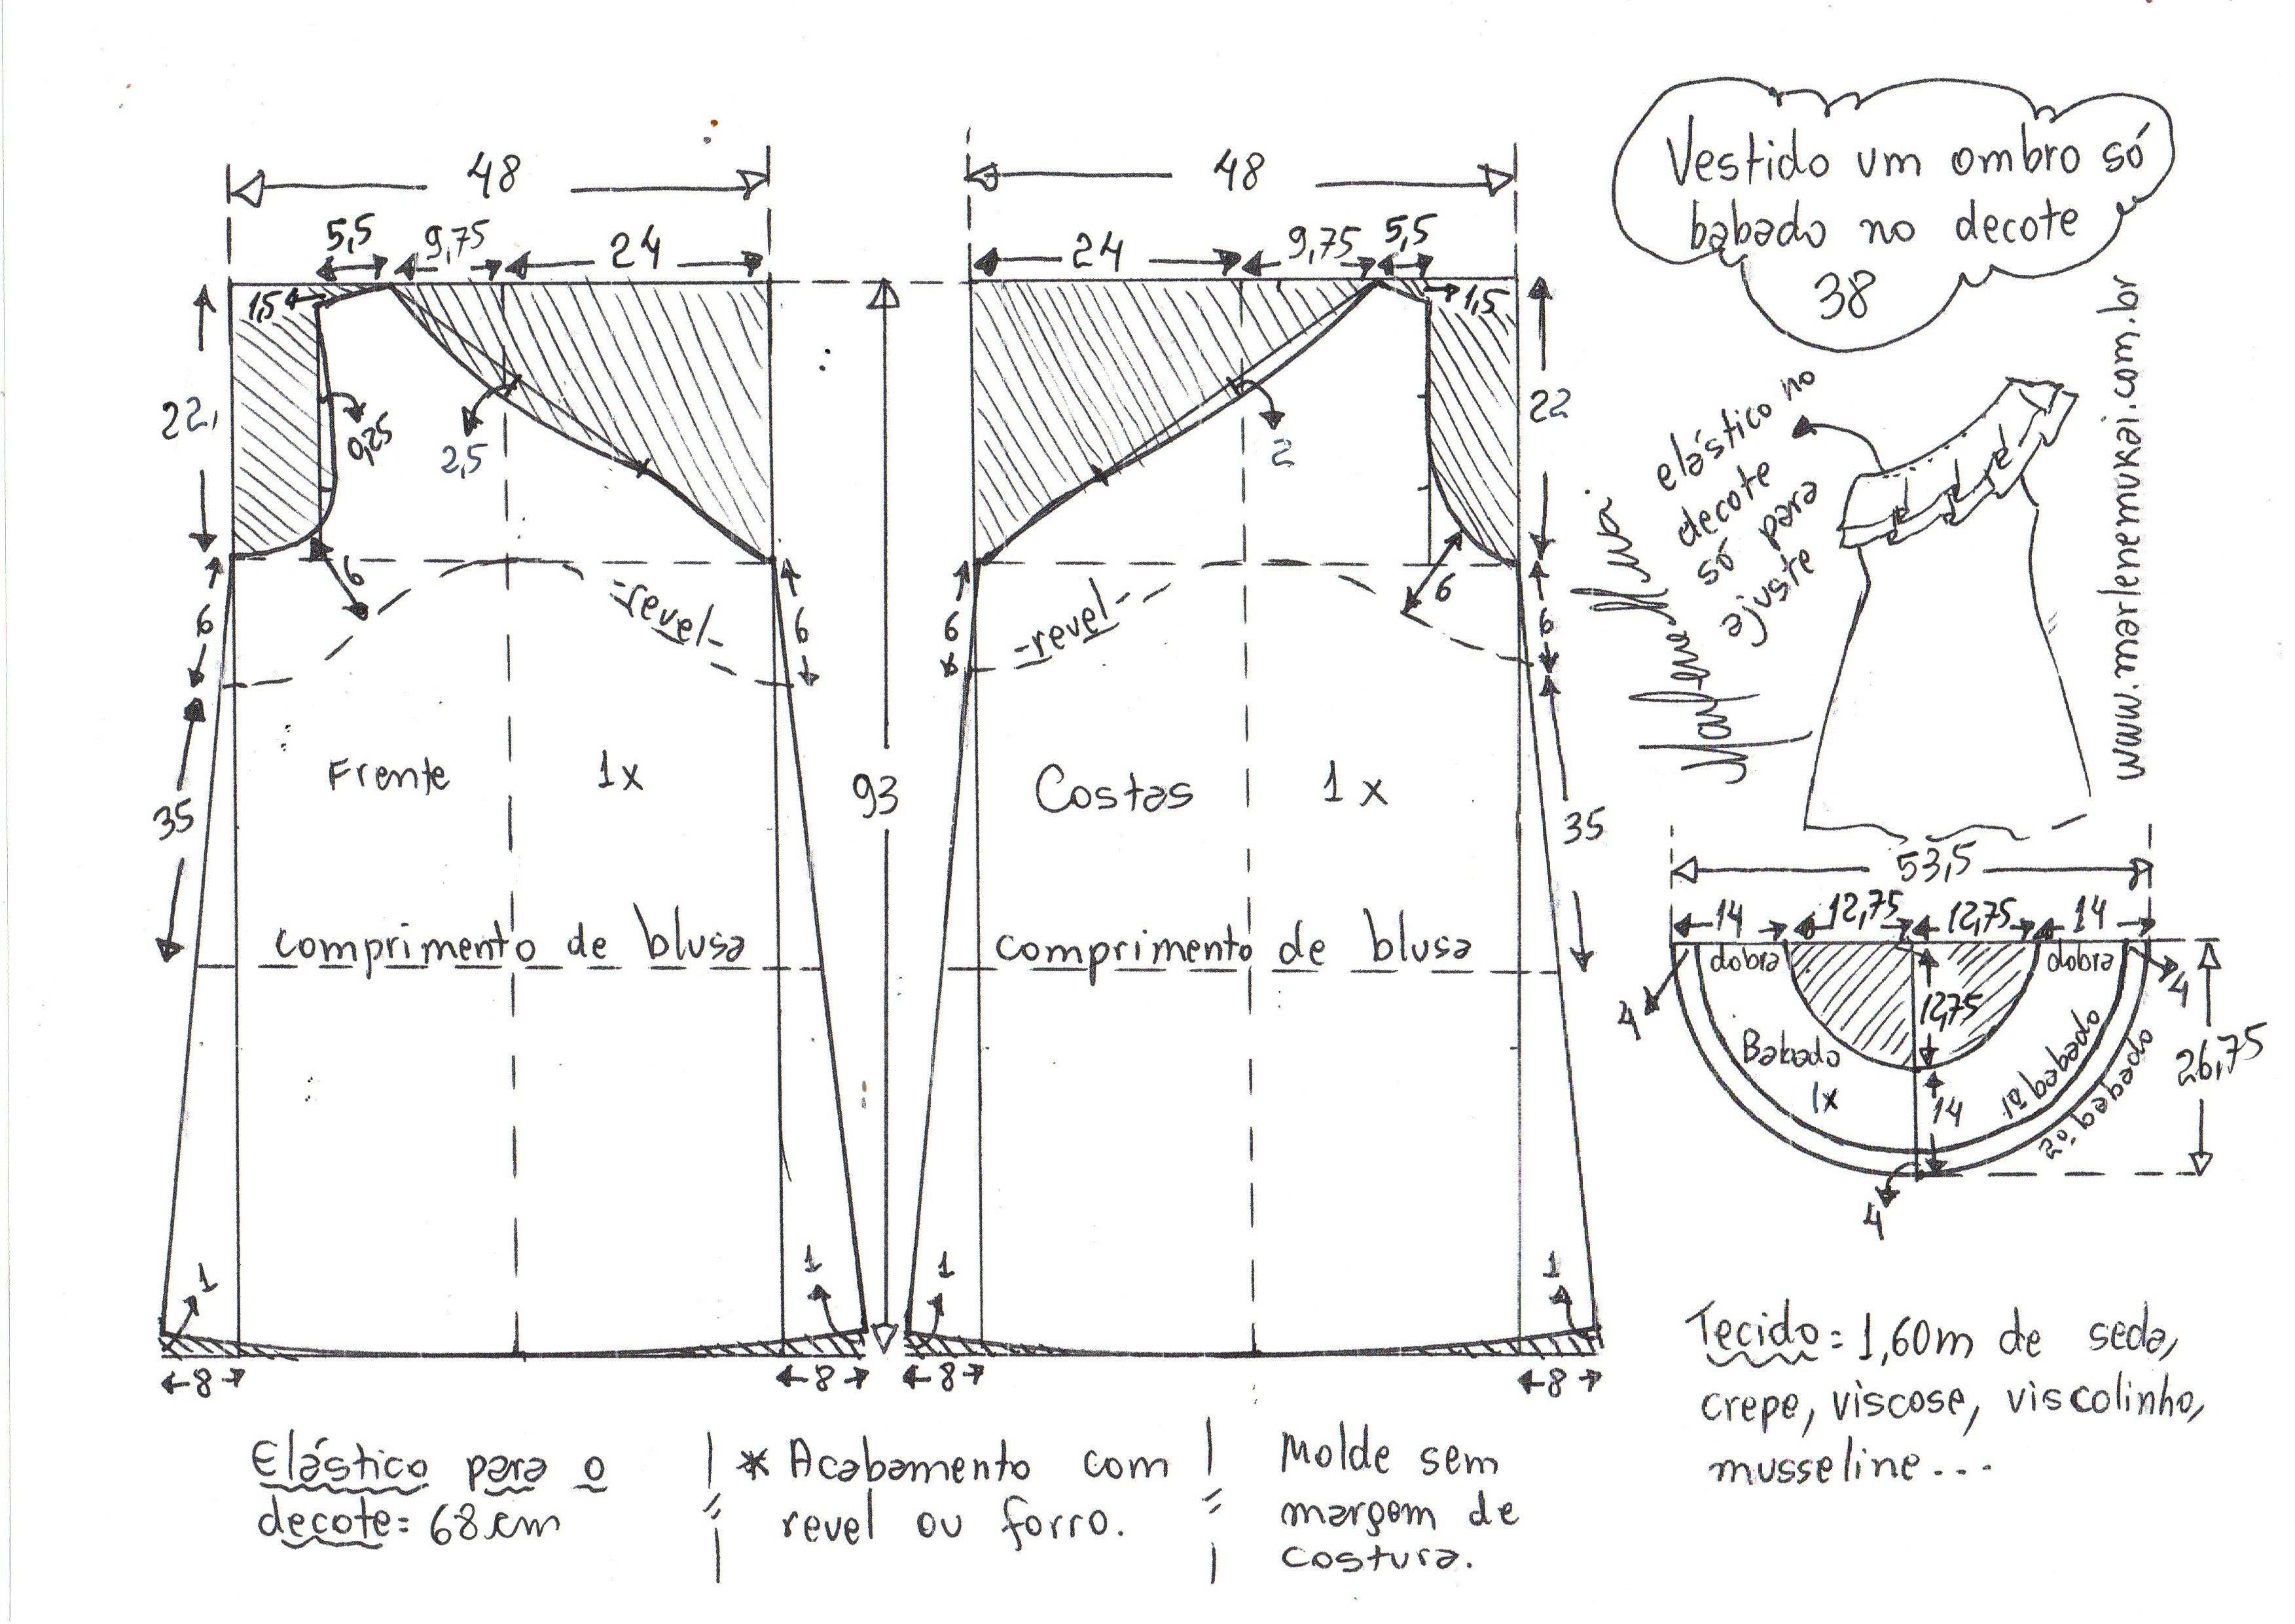 Vestido um ombro só
babado no decote
38
www.marlenemukai.com.br
elástico no
decote
só para
ajuste
48
5,5
9,75
24
1,5
22,
0,25
2,5
6
6
-revel-
6
35
Frente 1x
comprimento de blusa
1
1
8
8
93
48
24
9,75
5,5
1,5
22
2
6
6
-revel-
6
35
Costas 1x
comprimento de blusa
1
1
8
8
53,5
14
12,75
12,75
14
dobra
dobra
4
4
12,75
26,75
Babado
1x
14
1º babado
2º babado
4
Tecido = 1,60m de seda,
crepe, viscose, viscolinho,
musseline...
Elástico para o
decote = 68cm
* Acabamento com
revel ou forro.
Molde sem
margem de
costura.